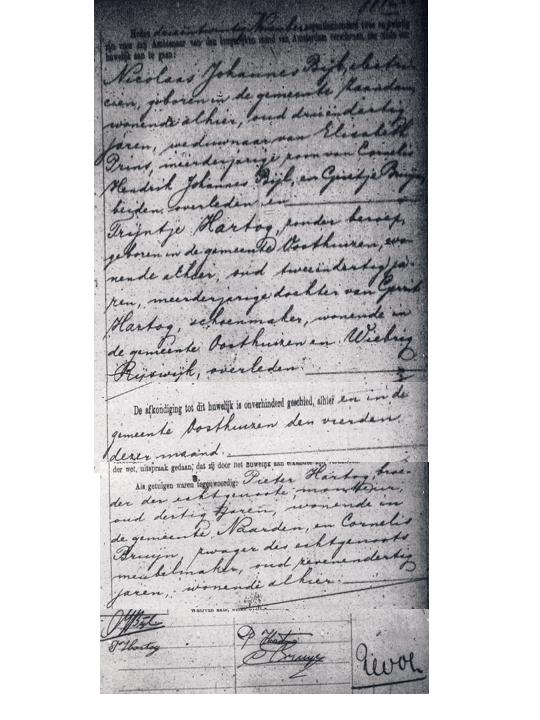 Heden drieentwintig negentienhonderd twee
zijn voor mij Ambtenaar van den burgerlijken stand van Amsterdam verschenen,
huwelijk aan te gaan:
Nicolaas Johannes Bijl, electri-
cien, geboren in de gemeente Zaandam,
wonende alhier, oud drieëndertig
jaren, weduwnaar van Elisabeth
Prins, meerderjarige zoon van Cornelis
Hendrik Johannes Bijl, en Grietje Bruyn,
beiden overleden, en
Trijntje Hartog, zonder beroep,
geboren in de gemeente Oosthuizen, wo-
nende alhier, oud tweeëndertig ja-
ren, meerderjarige dochter van Gerrit
Hartog, schoenmaker, wonende in
de gemeente Oosthuizen en Wiebrig
Rijswijk, overleden.
De afkondiging tot dit huwelijk is onverhinderd geschied, alhier en in de
gemeente Oosthuizen den vierden
dezer maand.
der wet, uitspraak gedaan, dat zij door het huwelijk aan
Als getuigen waren tegenwoordig: Pieter Hartog, broe-
der der echtgenoote, monteur,
oud dertig jaren, wonende in
de gemeente Naarden, en Cornelis
Bruijn, zwager des echtgenoots
meubelmaker, oud zevenendertig
jaren, wonende alhier.
NJBijl
THartog
P Hartog
C Bruijn